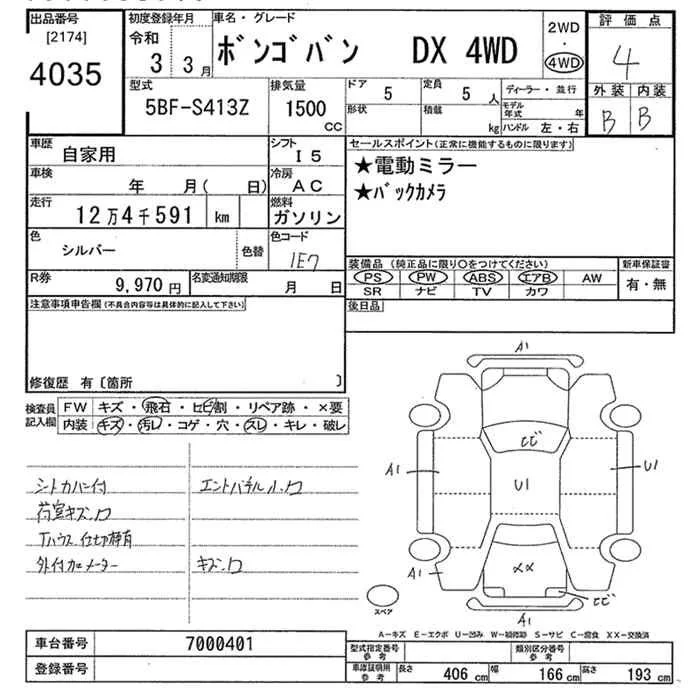 出品番号
[2174]
4035
初度登録年月
令和
3 3月
車名・グレード
ボンゴバン DX 4WD
2WD
・
4WD
評価点
4
外装 内装
B B
型式
5BF-S413Z
排気量
1500
CC
ドア
5
形状
定員
5人
積載
kg
ディーラー・並行
モデル年式 年
ハンドル 左・右
車歴
自家用
シフト
I5
車検
年 月( 日)
冷房
AC
走行
12万4千591 km
燃料
ガソリン
色
シルバー
色替
色コード
1E7
R券
9,970円
名変通知期限
月 日
セールスポイント(正常に機能するものに限ります)
★電動ミラー
★バックカメラ
装備品 (純正品に限り○をつけてください)
PS PW ABS エアB AW
SR ナビ TV カワ
新車保証書
有・無
後日品
注意事項申告欄(不具合内容等は具体的に記入して下さい)
修復歴 有〔箇所 〕
検査員
記入欄
FW キズ・飛石・ヒビ割・リペア跡・×要
内装 キズ・汚レ・コゲ・穴・スレ・キレ・破レ
シートカバー付
荷室キズ
外付カメーター
キズ
A1
ヒビ
A1
U1
U1
××
A1
ヒビ
A1
スペア
A-キズ E-エクボ U-凹み W-補修跡 S-サビ C-腐食 XX-交換済
車台番号
7000401
登録番号
型式指定番号
参考
類別区分番号
参考
車庫証明用
参考
長さ 406cm 幅 166cm 高さ 193cm